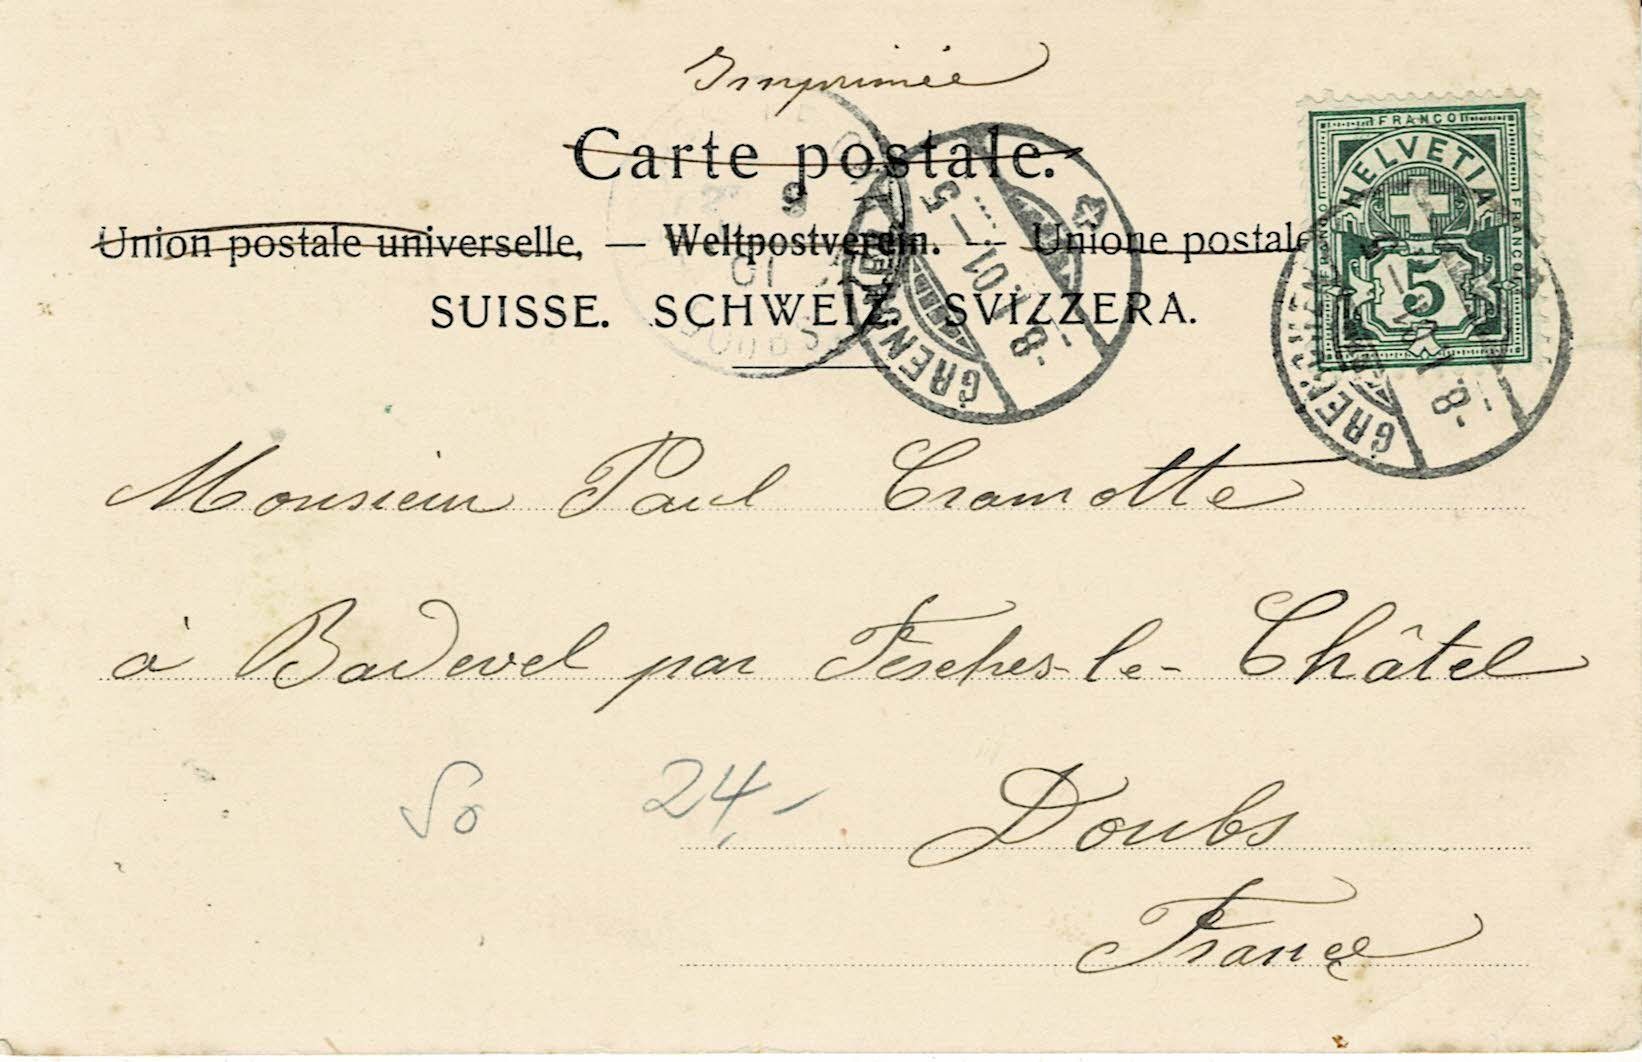 Imprimée
Carte postale.
Union postale universelle, — Weltpostverein. — Unione postale
SUISSE. SCHWEIZ. SVIZZERA.
FRANCO
HELVETIA
FRANCO
5
5—
1.01
-8
Monsieur Paul Cramotte
à Badevel par Fesches-le-Châtel
50 24,-
Doubs
France